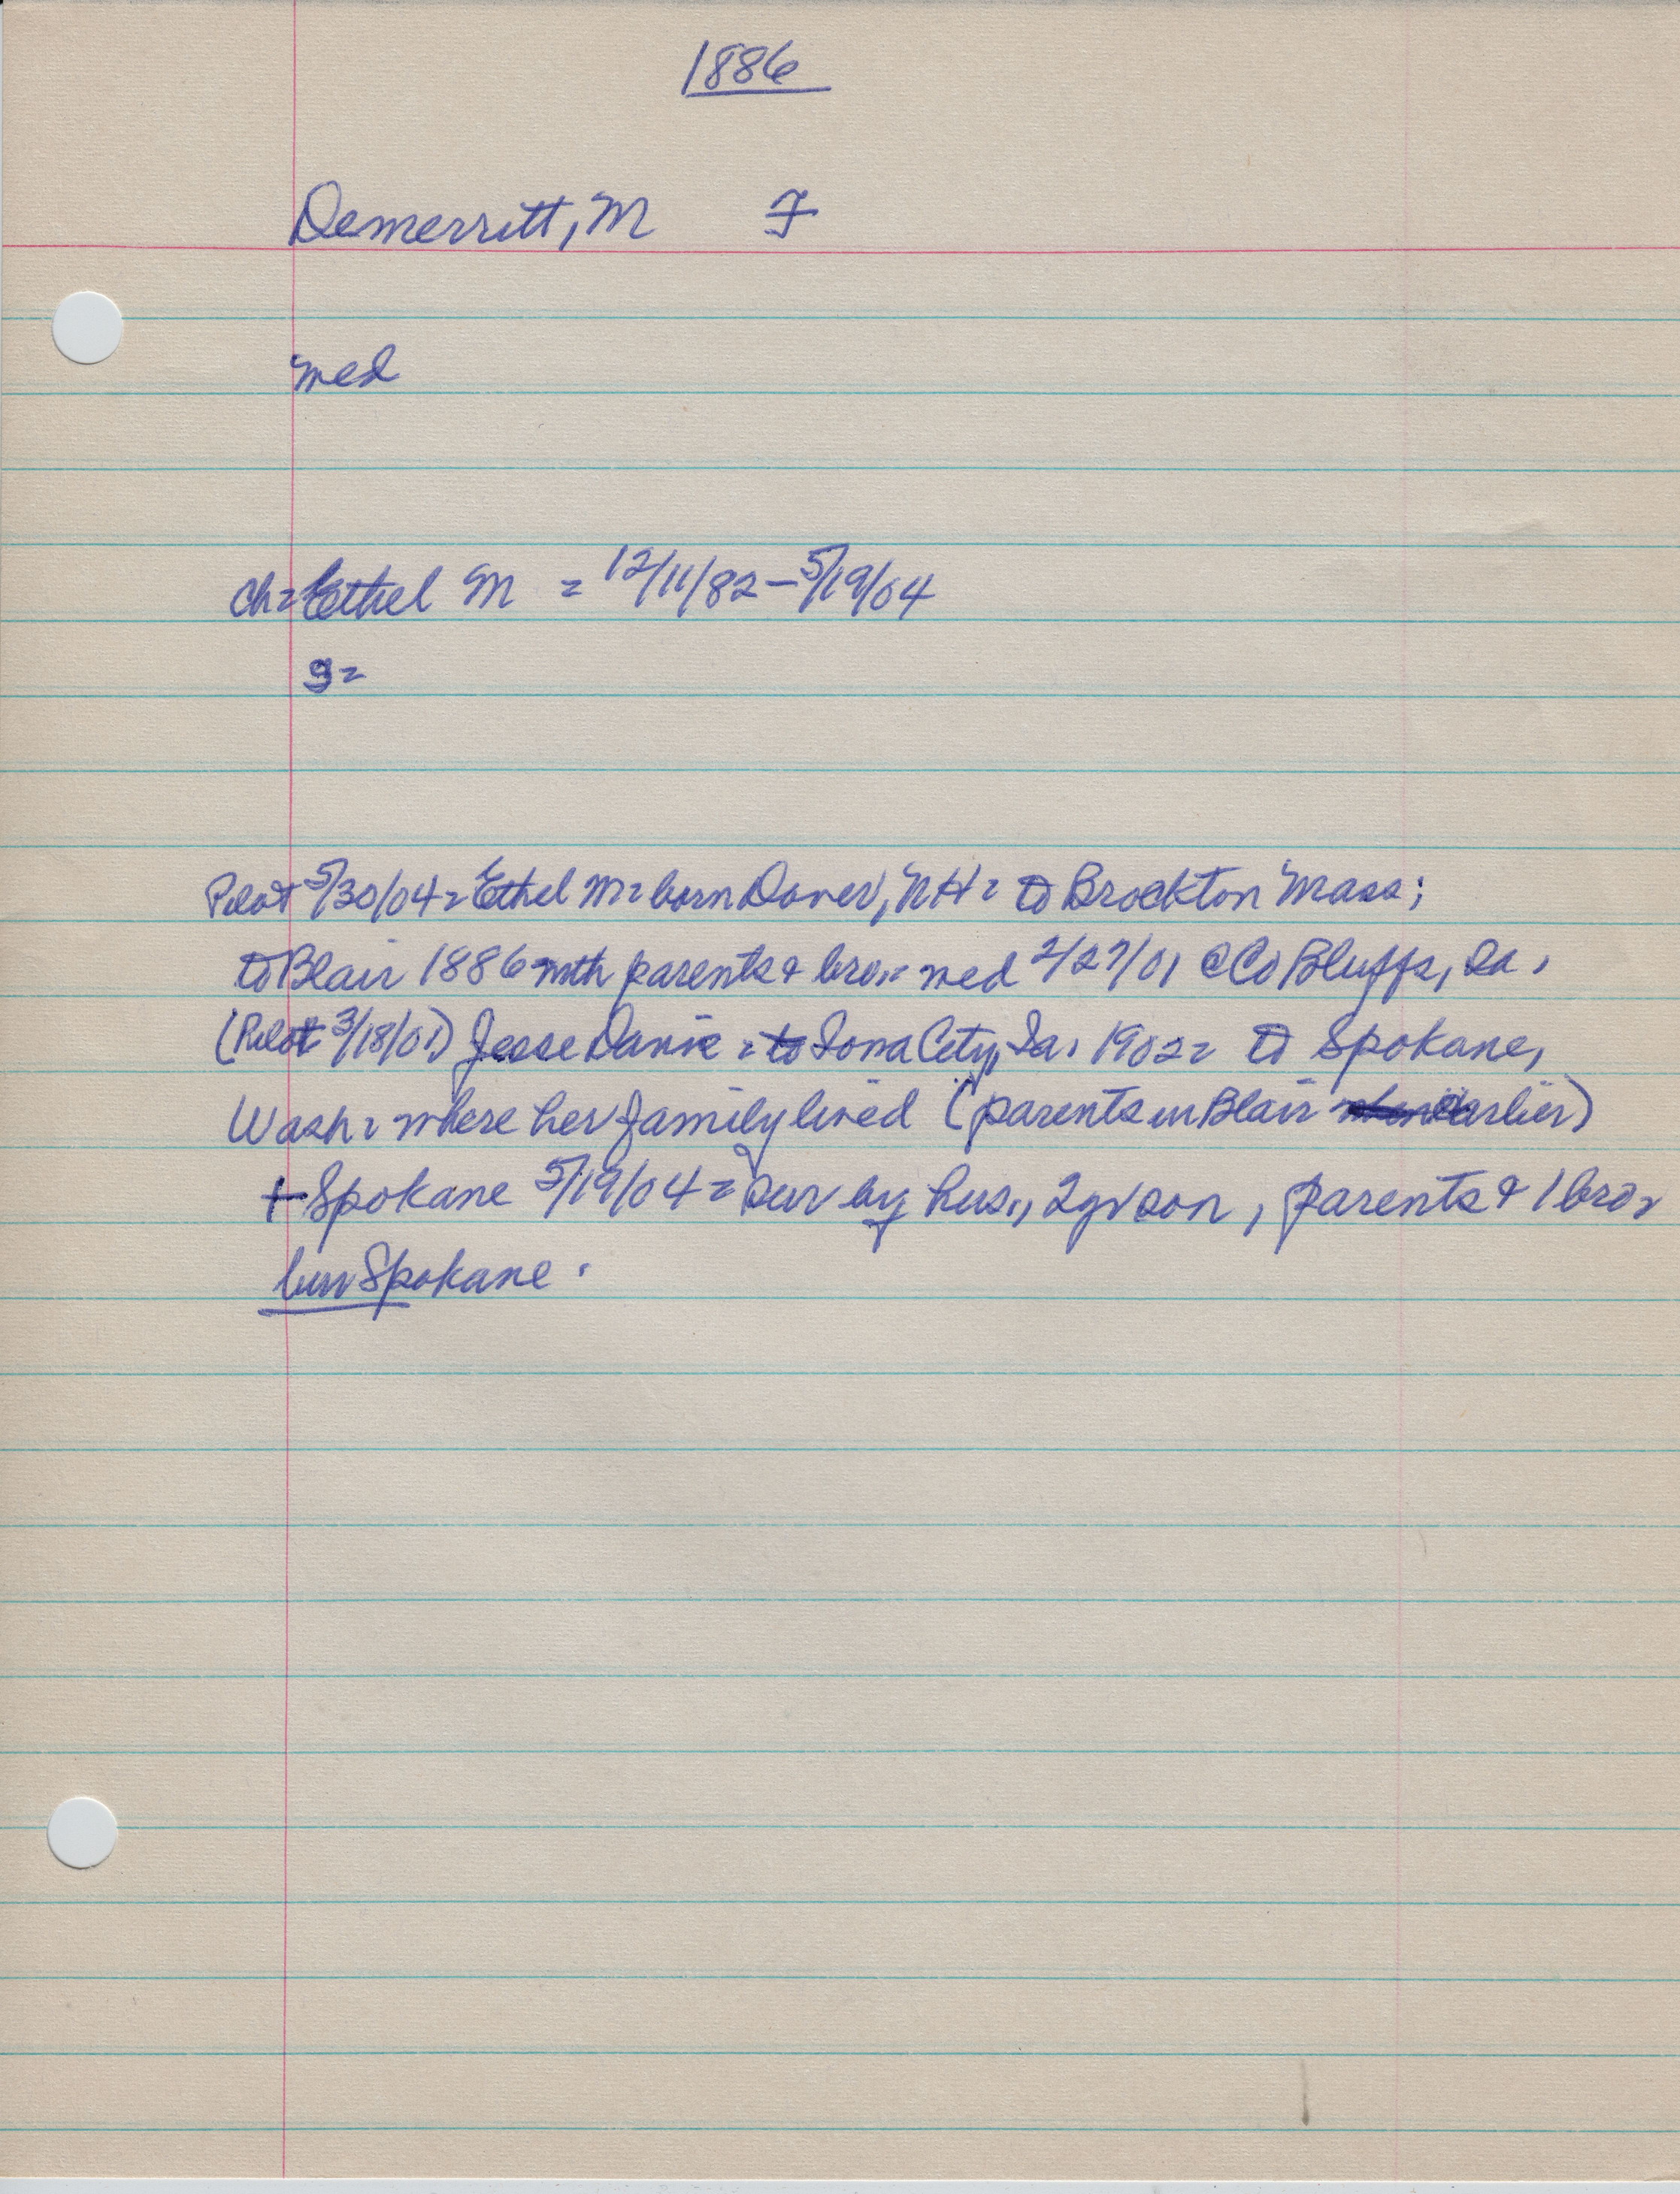 1886
Demerritt, M F
med
ch = Ethel M = 12/11/82 – 5/19/04
g =
Pilot 5/30/04 = Ethel M = born Dover, NH = to Brockton Mass;
to Blair 1886 with parents & bro. = med 2/27/01 @ Co Bluffs, Ia.
(Pilot 3/18/01) Jesse Davis = to Iowa City, Ia. 1902 = to Spokane,
Wash = where her family lived (parents in Blair earlier)
+ Spokane 5/19/04 = sur by hus., 2 yr son, parents & 1 bro =
bur Spokane.